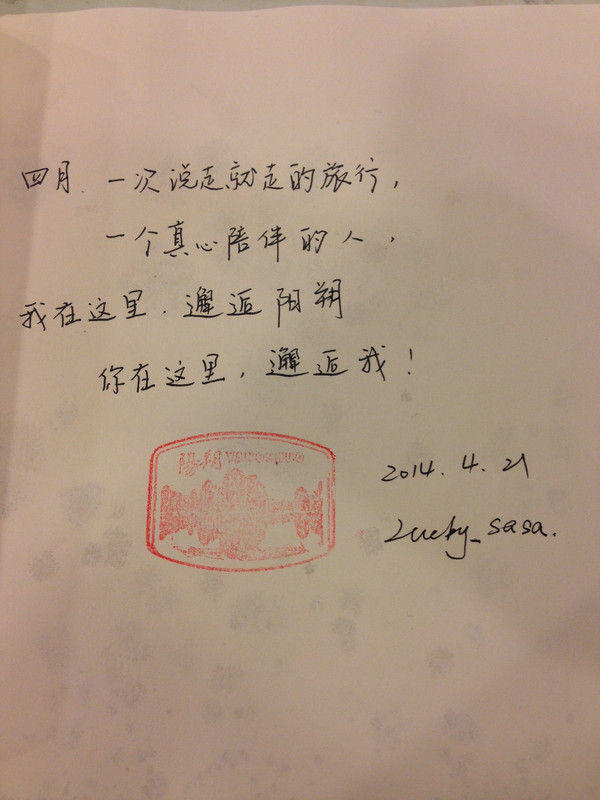 四月、一次说走就走的旅行，
一个真心陪伴的人，
我在这里，邂逅阳朔
你在这里，邂逅我！
陽朔 YANGSHUO
2014.4.21
Lucky_sasa.